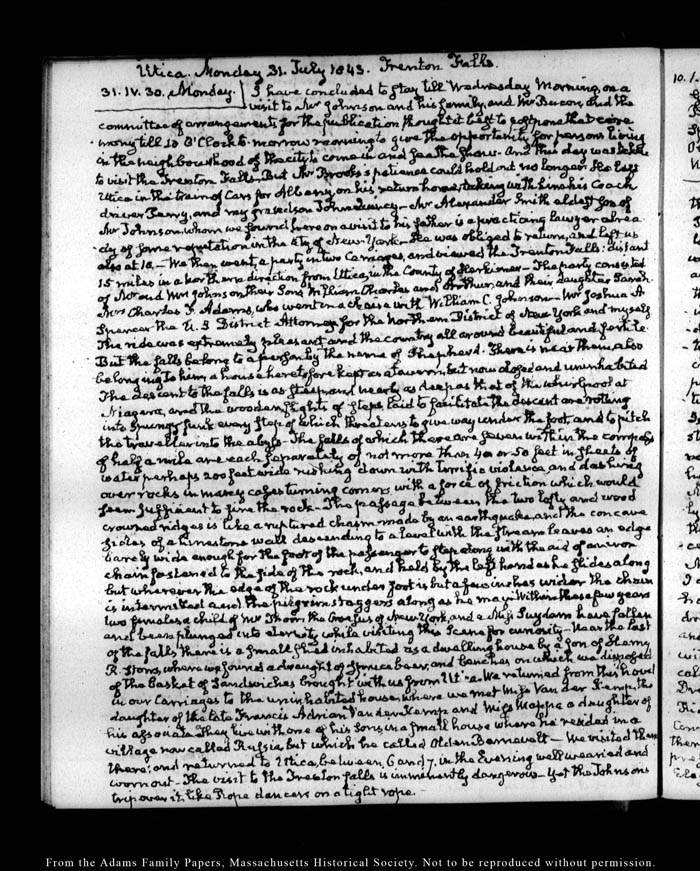 Utica. Monday 31. July 1843. Trenton Falls.
31. IV. 30. Monday. I have concluded to stay till Wednesday Morning, on a
visit to Mr Johnson and his family, and Mr Bacon, and the
committee of arrangements for the publication thought it best to postpone that cere-
mony till 10 O'Clock to-morrow morning to give the opportunity for persons living
in the neighbourhood of the city to come in and see the show. And this day was taken
to visit the Trenton Falls. But Mr Brooks's patience could hold out no longer. He left
Utica in the train of Cars for Albany on his return home, taking with him his Coach
driver Jerry, and my grandson John Quincy. Mr Alexander Smith eldest son of
Mr Johnson, whom we found here on a visit to his father is a practicing lawyer alrea-
dy of some reputation in the City of New-York. He was obliged to return, and left us
also at 10. We then went a party in two Carriages, and viewed the Trenton Falls: distant
15 miles in a northern direction from Utica, in the County of Herkimer. The party consisted
of Mr and Mrs Johnson their Sons William Charles and Arthur, and their daughter Sarah
Mrs Charles F. Adams, who went in a chaise with William C. Johnson. Mr Joshua A
Spencer the U. S District Attorney for the Northern District of New York and myself
The ride was extremely pleasant and the country all around beautiful and fertile.
But the falls belong to a person by the name of Shepherd. There is near them also
belonging to him, a house heretofore kept as a tavern, but now closed and uninhabited
The descent to the falls is as steep and nearly as deep as that of the whirlpool at
Niagara, and the wooden flights of steps laid to facilitate the descent are rotting
into every step of which threatens to give way under the foot, and to pitch
the traveller into the abyss. The falls of which there are seven within the compass
of half a mile are each separately of not more than 40 or 50 feet in sheets of
water perhaps 200 feet wide rushing down with terrific violence and dashing
over rocks in many cases turning corners with a force of friction which would
seem sufficient to fire the rock. The passage between the two lofty and wood
crowned ridges is like a ruptured chasm made by an earthquake, and the concave
sides of a limestone wall descending to a level with the stream leaves an edge
barely wide enough for the foot of the passenger to step along with the aid of an iron
chain fastened to the side of the rock, and held by the left hand as he glides along
but wherever the edge of the rock under foot is but a few inches wider the chain
is intermitted and the pilgrim staggers along as he may. Within these few years
two females a child of Mr Thorn the Croesus of New York, and a Miss Suydam have fallen
and been plunged into eternity while visiting this scene for curiosity. Near the last
of the falls there is a small shed inhabited as a dwelling house by a son of
R. Storrs, where we found a draught of spruce beer, and benches on which we disposed
of the basket of Sandwiches brought with us from Utica. We returned from this hovel
in our Carriages to the uninhabited house, where we met Miss Van der Kemp, the
daughter of the late Francis Adrian Van der Kemp and Miss Mappa a daughter of
his associate. They live with one of his sons in a small house where he resided in a
village now called Russia, but which he called Olden Barnevelt. We visited them
there; and returned to Utica, between 6 and 7, in the Evening well wearied and
worn out. The visit to the Trenton falls is imminently dangerous. Yet the Johnsons
trip over it, like Rope dancers on a tight rope.
From the Adams Family Papers, Massachusetts Historical Society. Not to be reproduced without permission.